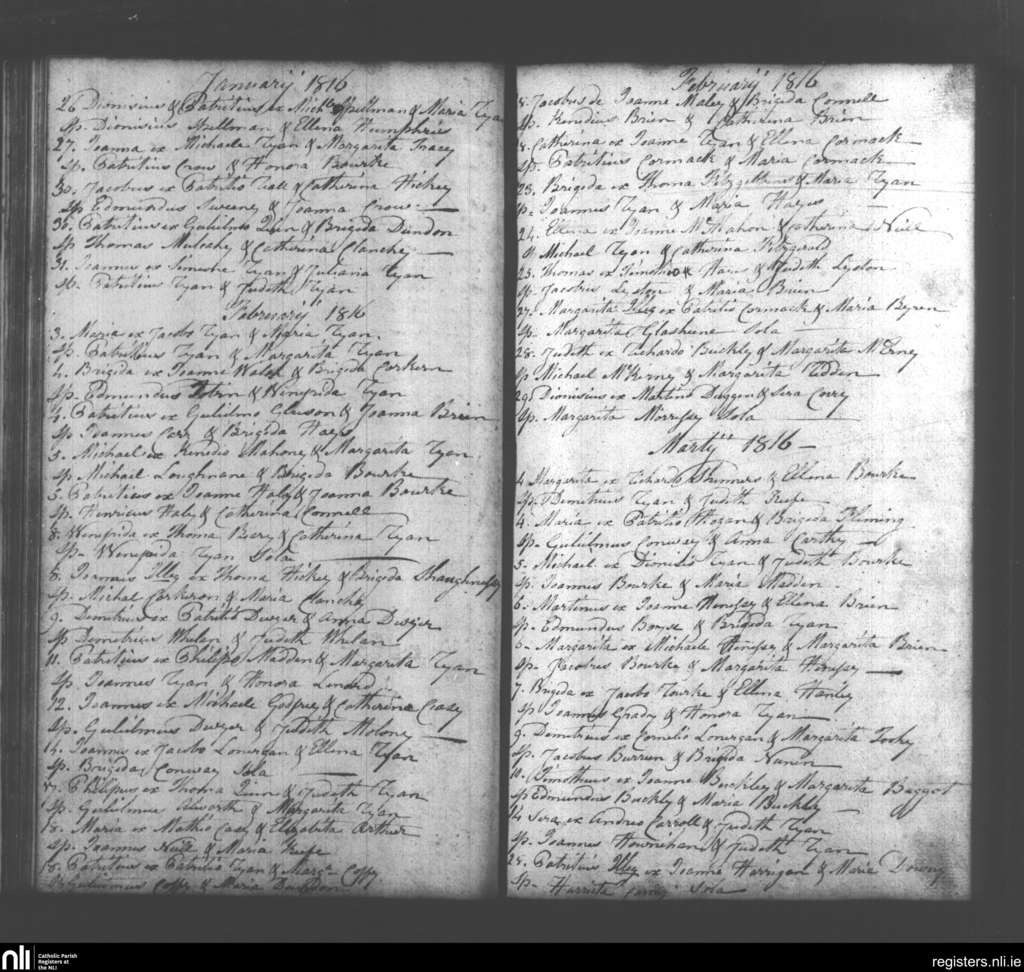 Januarij 1816
26 Dionisius & Patritius ex Mich. Spellman & Maria Ryan
Sp. Dionisius Spellman & Ellena Humphries
27. Joanna ex Michaele Ryan & Margarita Tracey
Sp. Patritius Crow & Honora Bourke
30. Jacobus ex Patritio & Catherina Hickey
Sp Edmundus Sweeney & Joanna Crow
30. Patritius ex Gulielmo Quin & Brigida Dundon
Sp Thomas Mulcahy & Catherina Clanchy
31. Joannes ex Simeone Ryan & Juliana Ryan
Sp. Patritius Ryan & Judith Ryan
Februarij 1816
3. Maria ex Jacobo Ryan & Maria Ryan
Sp. Patritius Ryan & Margarita Ryan
4. Brigida ex Joanne Walsh & Brigida Corkern
Sp. Edmundus Tobin & Winifrida Ryan
4. Patritius ex Gulielmo & Joanna Brien
Sp Joannes Carr & Brigida Hayes
5. Michael ex Kenedio Mahony & Margarita Ryan
Sp. Michael Loughnane & Brigida Bourke
5. Patritius ex Joanne Haly & Joanna Bourke
Sp. Henricus Haly & Catherina Connell
8. Winifrida ex Thoma Bary & Catherina Ryan
Sp. Winifrida Ryan Sola
8. Joannes Illeg ex Thoma Hickey & Brigida Shaughnessy
Sp. Michael Corkeron & Maria Clanchy
9. Demetrius ex Patritio Dwyer & Anna Dwyer
Sp Demetrius Whelan & Judith Whelan
11. Patritius ex Philippo Madden & Margarita Ryan
Sp. Joannes Ryan & Honora Lenard
12. Joannes ex Michaele Godfrey & Catherina Casey
Sp. Gulielmus Dwyer & Judith Molony
14. Joannes ex Jacobo Lonergan & Ellena Ryan
Sp. Brigida Conway Sola
17. Philipus ex Thoma Quin & Judith Ryan
Sp. Gulielmus & Margarita Ryan
18. Maria ex Mathio Casey & Elizabeta Arthur
Sp. Joannes & Maria Keefe
18. Patritius ex Patritio Ryan & Marg. Coffy
Sp. Gulielmus Coffy & Maria Dundon
Februarij 1816
8. Jacobus de Joanne Maley & Brigida Connell
Sp. Kenedius Brien & Catherina Brien
8. Catherina ex Joanne Ryan & Ellena Cormack
Sp. Patritius Cormack & Maria Cormack
23. Brigida ex Thoma & Maria Ryan
Sp. Joannes Ryan & Maria Hayes
24. Ellena ex Joanne McMahon & Catherina Niell
Sp Michael Ryan & Catherina Fitzgerald
25. Thomas ex Timotheo & Judith Lyston
Sp. Jacobus Lyston & Maria Brien
27. Margarita Illeg ex Patritio Cormack & Maria Byren
Sp. Margarita Glasheene Sola
28. Judith ex Richardo Buckly & Margarita McErney
Sp Michael McKerney & Margarita Madden
29. Dionisius ex Martino Duggan & Sera Conry
Sp. Margarita Morrissy Sola
Martij 1816
4 Margarita ex Richardo Skinners & Ellena Bourke
Sp. Demetrius Ryan & Judith Keefe
4. Maria ex Patritio Hogan & Brigida Fleming
Sp. Gulielmus Conway & Anna Carthy
5. Michael ex Dionisio Ryan & Judith Bourke
Sp. Joannes Bourke & Maria Madden
6. Martinus ex Joanne Henessy & Ellena Brien
Sp. Edmundus Bourke & Brigida Ryan
5. Margarita ex Michaele Henessy & Margarita Brien
Sp. Jacobus Bourke & Margarita Henessy
7. Brigida ex Jacobo Rourke & Ellena Hanley
Sp Joannes Grady & Honora Ryan
9. Demetrius ex Cornelio Lonergan & Margarita Toohy
Sp. Jacobus Burren & Brigida Nunen
10. Timotheus ex Joanne Buckley & Margarita Baggot
Sp Edmundus Buckly & Maria Buckley
14 Sera ex Andreo Carroll & Judith Ryan
Sp. Joannes Hourihan & Judith Ryan
25. Patritius Illeg ex Joanne Harrigan & Maria Downy
Sp. Harrieta Sola
nli
Catholic Parish
Registers at
the NLI
registers.nli.ie